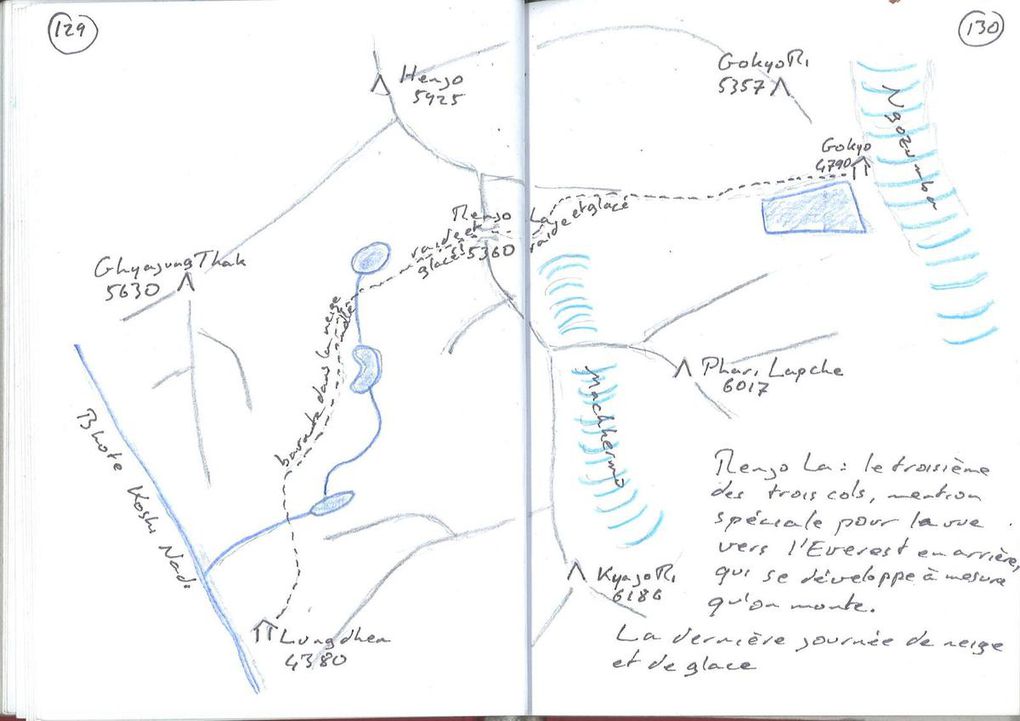 129
Henjo
5925
Ghyazung Thak
5630
Renjo La
5360
raide et
glacé
raide et glacé
dans la neige
Bhote Koshi Nadi
Lungdhen
4380
130
Gokyo Ri
5357
Gokyo
4790
Ngozumba
Machhermo
Phari Lapche
6017
Kyajo Ri
6186
Renjo La : le troisième
des trois cols, mention
spéciale pour la vue
vers l'Everest en arrière,
qui se développe à mesure
qu'on monte.
La dernière journée de neige
et de glace